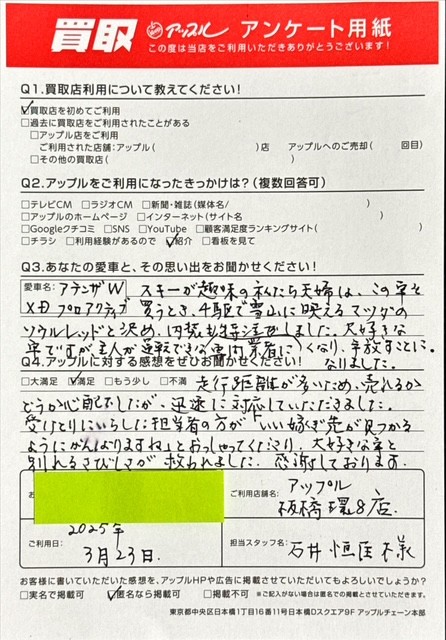 買取 アップル アンケート用紙
この度は当店をご利用いただきありがとうございます！
Q1.買取店利用について教えてください！
☑買取店を初めてご利用
□過去に買取店をご利用されたことがある
□アップル店をご利用
ご利用された店舗:アップル( )店 アップルへのご売却( 回目)
□その他の買取店( )
Q2.アップルをご利用になったきっかけは？(複数回答可)
□テレビCM □ラジオCM □新聞・雑誌(媒体名/ )
□アップルのホームページ □インターネット(サイト名 )
□Googleクチコミ □SNS □YouTube □顧客満足度ランキングサイト( )
□チラシ □利用経験があるので ☑紹介 □看板を見て
Q3.あなたの愛車と、その思い出をお聞かせください！
愛車名:アテンザW スキーが趣味の私たち夫婦は、この車を
XD プロアクティブ 買うとき、4駆で雪山に映えるマツダの
ソウルレッドと決め、内装も特注がしました。大好きな
車ですが主人が運転できな(専門業者に)くなり、手放すことに
なりました。
Q4.アップルに対する感想をぜひお聞かせください！
□大満足 ☑満足 □もう少し □不満 走行距離が多いため、売れるか
どうか心配でしたが、迅速に対応していただきました。
受けとりにいらした担当者の方が「いい嫁ぎ先が見つかる
ようにがんばりますね」とおっしゃってくださり、大好きな車と
別れるさびしさが救われました。感謝しております。
お
ご利用店舗名: アップル
板橋環8店
ご利用日: 2025年
3月23日.
担当スタッフ名: 石井 恒匡 様
お客様に書いていただいた感想を、アップルHPや広告に掲載させていただいてもよろしいでしょうか？
□実名で掲載可 ☑匿名なら掲載可 □掲載不可 ※ご記入がない場合は匿名での掲載とさせていただきます。
東京都中央区日本橋1丁目16番11号日本橋Dスクエア9F アップルチェーン本部